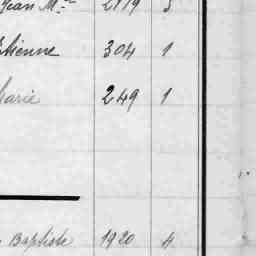 Jean M.ie 2119 5
Etienne 304 1
Marie 249 1
Baptiste 1920 4